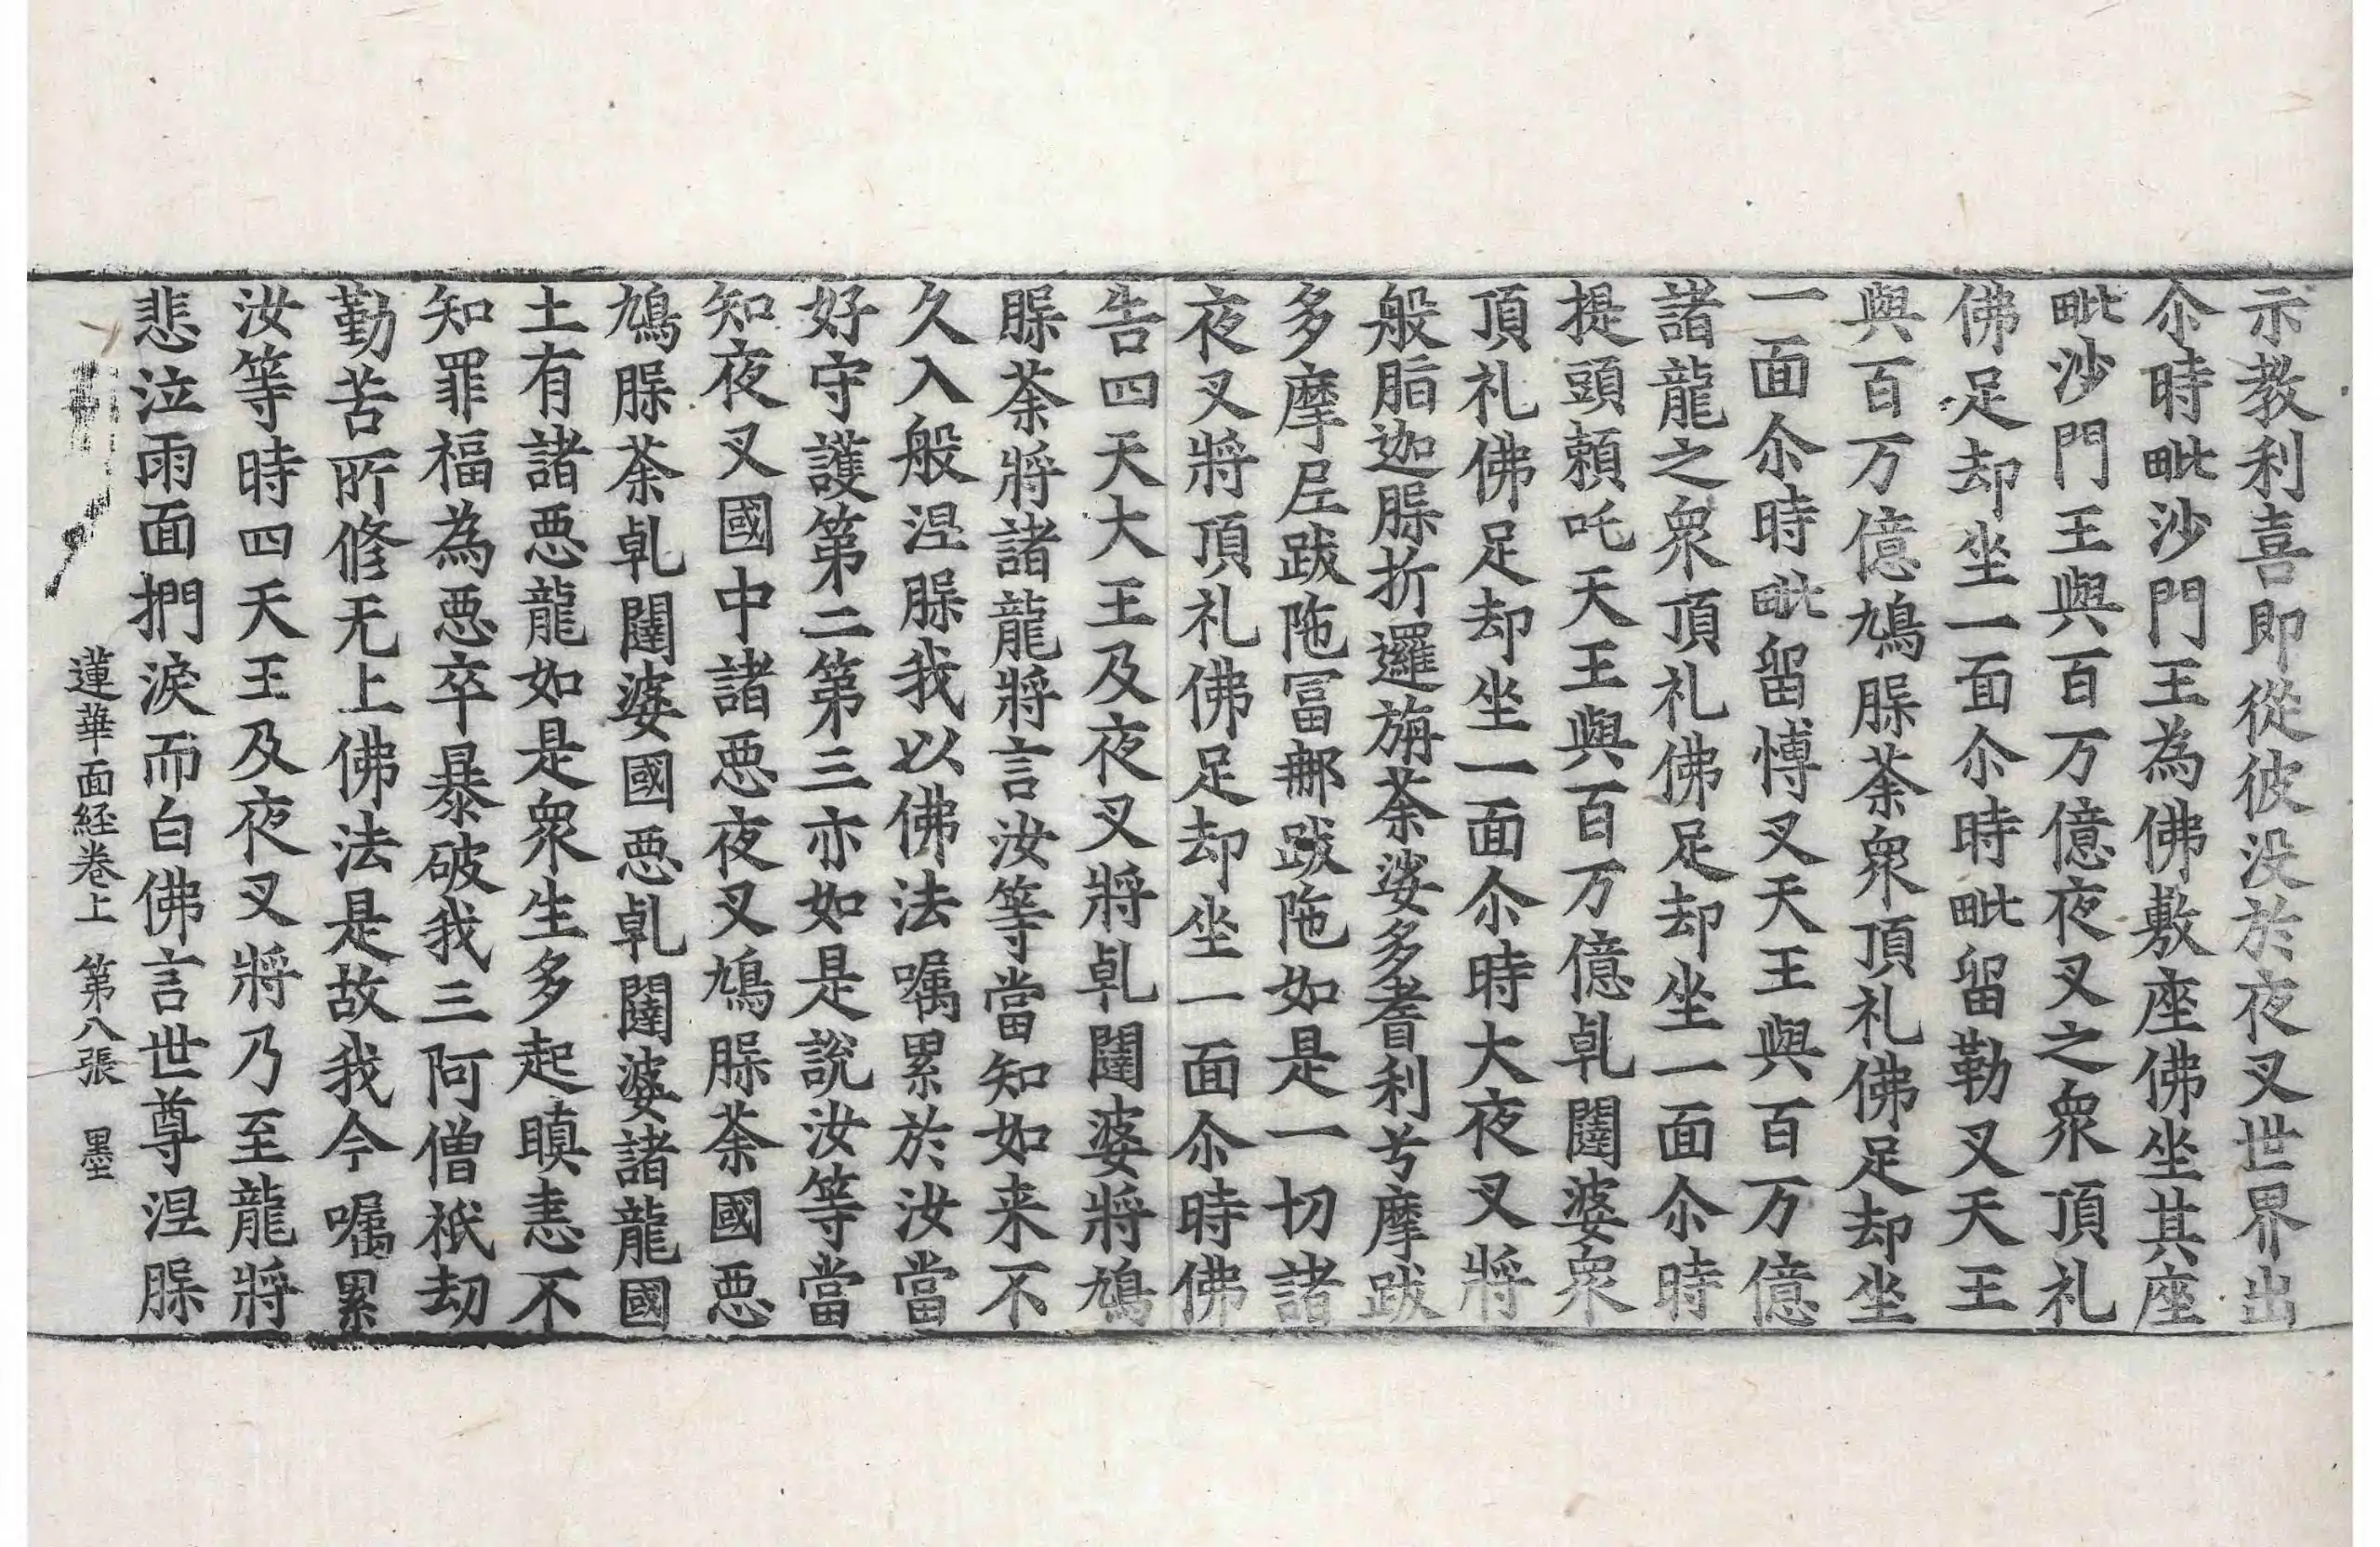 示教利喜即從彼没於夜叉世界出
尒時毗沙門王為佛敷座佛坐其座
毗沙門王與百万億夜叉之衆頂礼
佛足却坐一面尒時毗留勒叉天王
與百万億鳩脲荼衆頂礼佛足却坐
一面尒時毗留愽叉天王與百万億
諸龍之衆頂礼佛足却坐一面尒時
提頭頼吒天王與百万億乹闥婆衆
頂礼佛足却坐一面尒時大夜叉將
般脂迦脲折邏旃荼娑多耆利兮摩跋
多摩𡰱跋陁冨𨚗跋陁如是一切諸
夜叉將頂礼佛足却坐一面尒時佛
告四天大王及夜叉將乹闥婆將鳩
脲荼將諸龍將言汝等當知如来不
久入般涅脲我以佛法嘱累於汝當
好守護第二第三亦如是說汝等當
知夜叉國中諸𢙣夜叉鳩脲荼國𢙣
鳩脲荼乹闥婆國𢙣乹闥婆諸龍國
土有諸𢙣龍如是衆生多起瞋恚不
知罪福為𢙣卒暴破我三阿僧祇劫
勤苦所修无上佛法是故我今嘱累
汝等時四天王及夜叉將乃至龍將
悲泣雨面捫淚而白佛言世尊涅脲
蓮華面経卷上 第八張 墨